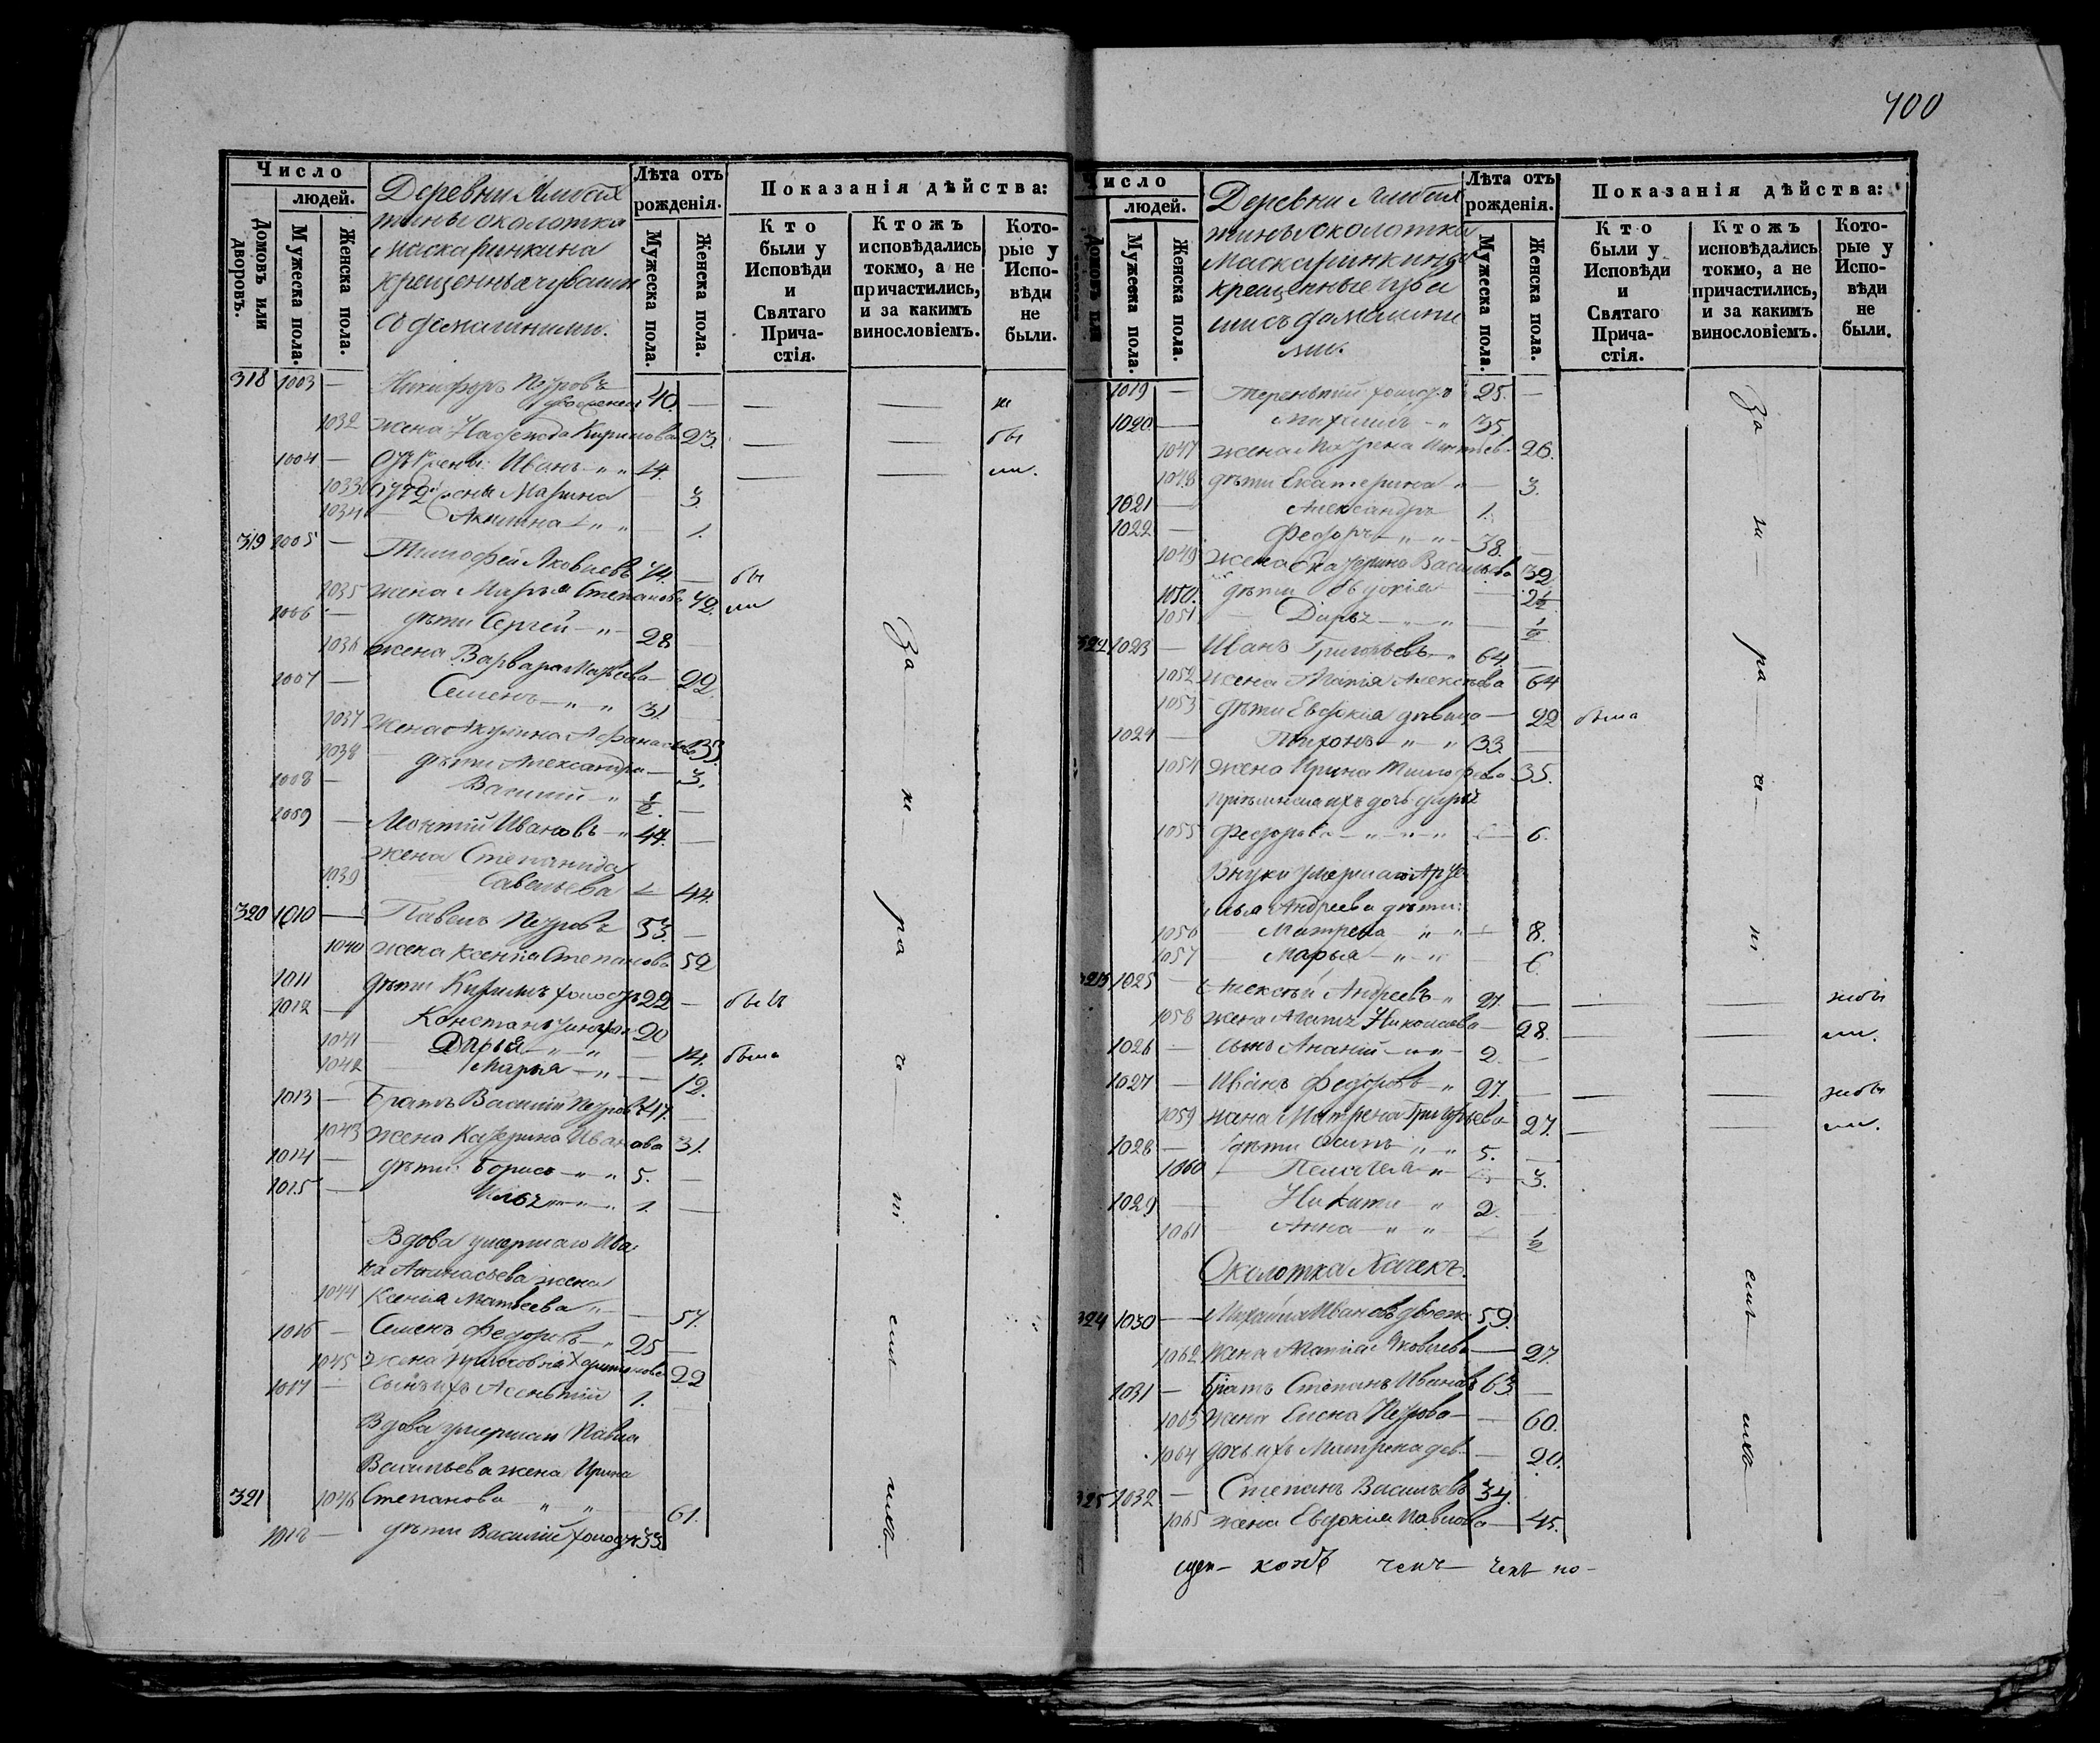 400
Число
людей.
Домовъ или дворовъ.
Мужеска пола.
Женска пола.
Деревни
тины околотка
Маскаринкина
крещенны чуваши
съ домашними.
Лѣта отъ рожденія.
Мужеска пола.
Женска пола.
Показанія дѣйства:
Кто были у Исповѣди и Святаго Прича-стія.
Ктожъ исповѣдались токмо, а не причастились, и за какимъ винословіемъ.
Кото-рые у Испо-вѣди не были.
318 1003 — Никифоръ Петровъ
40. — — — не
1032 жена Надежда Кирилова 23. — — бы
1004 — Иванъ 14. — — ли.
1033 Марина — 3.
1034 Акилина — 1.
319 1005 — Тимофей Яковлевъ 44. — бы
1035 жена Марья Степанова 42. ли
1006 — дѣти Сергей 28 —
1036 жена Варвара Матвѣева — 22.
1007 — Семенъ 31. —
1037 жена Акулина Афанасьева 33.
1038 дѣти Александра — 3.
1008 — Василій ½. —
1009 — Леонтій Ивановъ 44. —
жена Степанида
1039 Савельева 44.
320 1010 — Павелъ Петровъ 53. —
1040 жена Ксенія Степанова 52
1011 дѣти Кирилъ холостъ 22 — былъ
1012 — Константинъ 20
1041 — Дарья — 14. была
1042 Марья — 12.
1013 — Братъ Василій Петровъ 47. —
1043 жена Катерина Иванова 31.
1014 — дѣти Борисъ 5. —
1015 — Илья 1. —
Вдова умершаго Ива-
на Афанасьева жена
1044 Ксенія Матвеева — 57.
1016 — Семенъ Федоровъ 25 —
1045 жена Харитонова 22
1017 — сынъ ихъ 1. —
Вдова умершаго Павла
Васильева жена Ирина
321 1046 Степанова 61.
1018 — дѣти Василій холостъ 33.
За не ра че ні емъ
Число
людей.
Домовъ или
Мужеска пола.
Женска пола.
Деревни
тины околотка
Маскаринкины
крещенные чува
ши съ домашни
ми.
Лѣта отъ рожденія.
Мужеска пола.
Женска пола.
Показанія дѣйства:
Кто были у Исповѣди и Святаго Прича-стія.
Ктожъ исповѣдались токмо, а не причастились, и за какимъ винословіемъ.
Кото-рые у Испо-вѣди не были.
1019 — Терентій холостъ 25. —
1020. — Михаилъ 35
1047 жена Матрена 26.
1048 дѣти Екатерина — 3.
1021 — Александръ 1.
1022 — Федоръ 38. —
1049 жена Катерина Васильева 32
1050. дѣти Евдокія — 2½
1051 — Дарья — ½
322 1023 — Иванъ Григорьевъ 64. —
1052 жена Агафія Алексѣева 64
1053 дѣти Евдокія дѣвица — 22 была
1024 — Тихонъ 33. —
1054 жена Ирина Тимофеева 35.
ихъ дочь Дарья
1055 Федорова — 6.
Внуки умершаго
Андреева дѣти:
1056 Матрена 8.
1057 Марья — 6.
323 1025 — Алексѣй Андреевъ 27. — — — небы
1058 жена Николаева — 28. — — ли.
1026 — сынъ Ананій 2. —
1027 — Иванъ Федоровъ 27. — — — небы
1059 жена Матрена Григорьева 27. — — ли.
1028 — дѣти Осипъ 5. —
1060 — Пелагея 3.
1029 — Никита 2. —
1061 — Анна ½
Околотка Хачекъ.
324 1030 — Михаилъ Ивановъ 59.
1062 жена Яковлева — 27.
1031 — братъ Степанъ Ивановъ 63 —
1063 жена Елена Петрова — 60.
1064 дочь ихъ Матрена дѣв. — 20.
325 1032 — Степанъ Васильевъ 34.
1065 жена Евдокія Павлова — 45.
За не ра че ні емъ